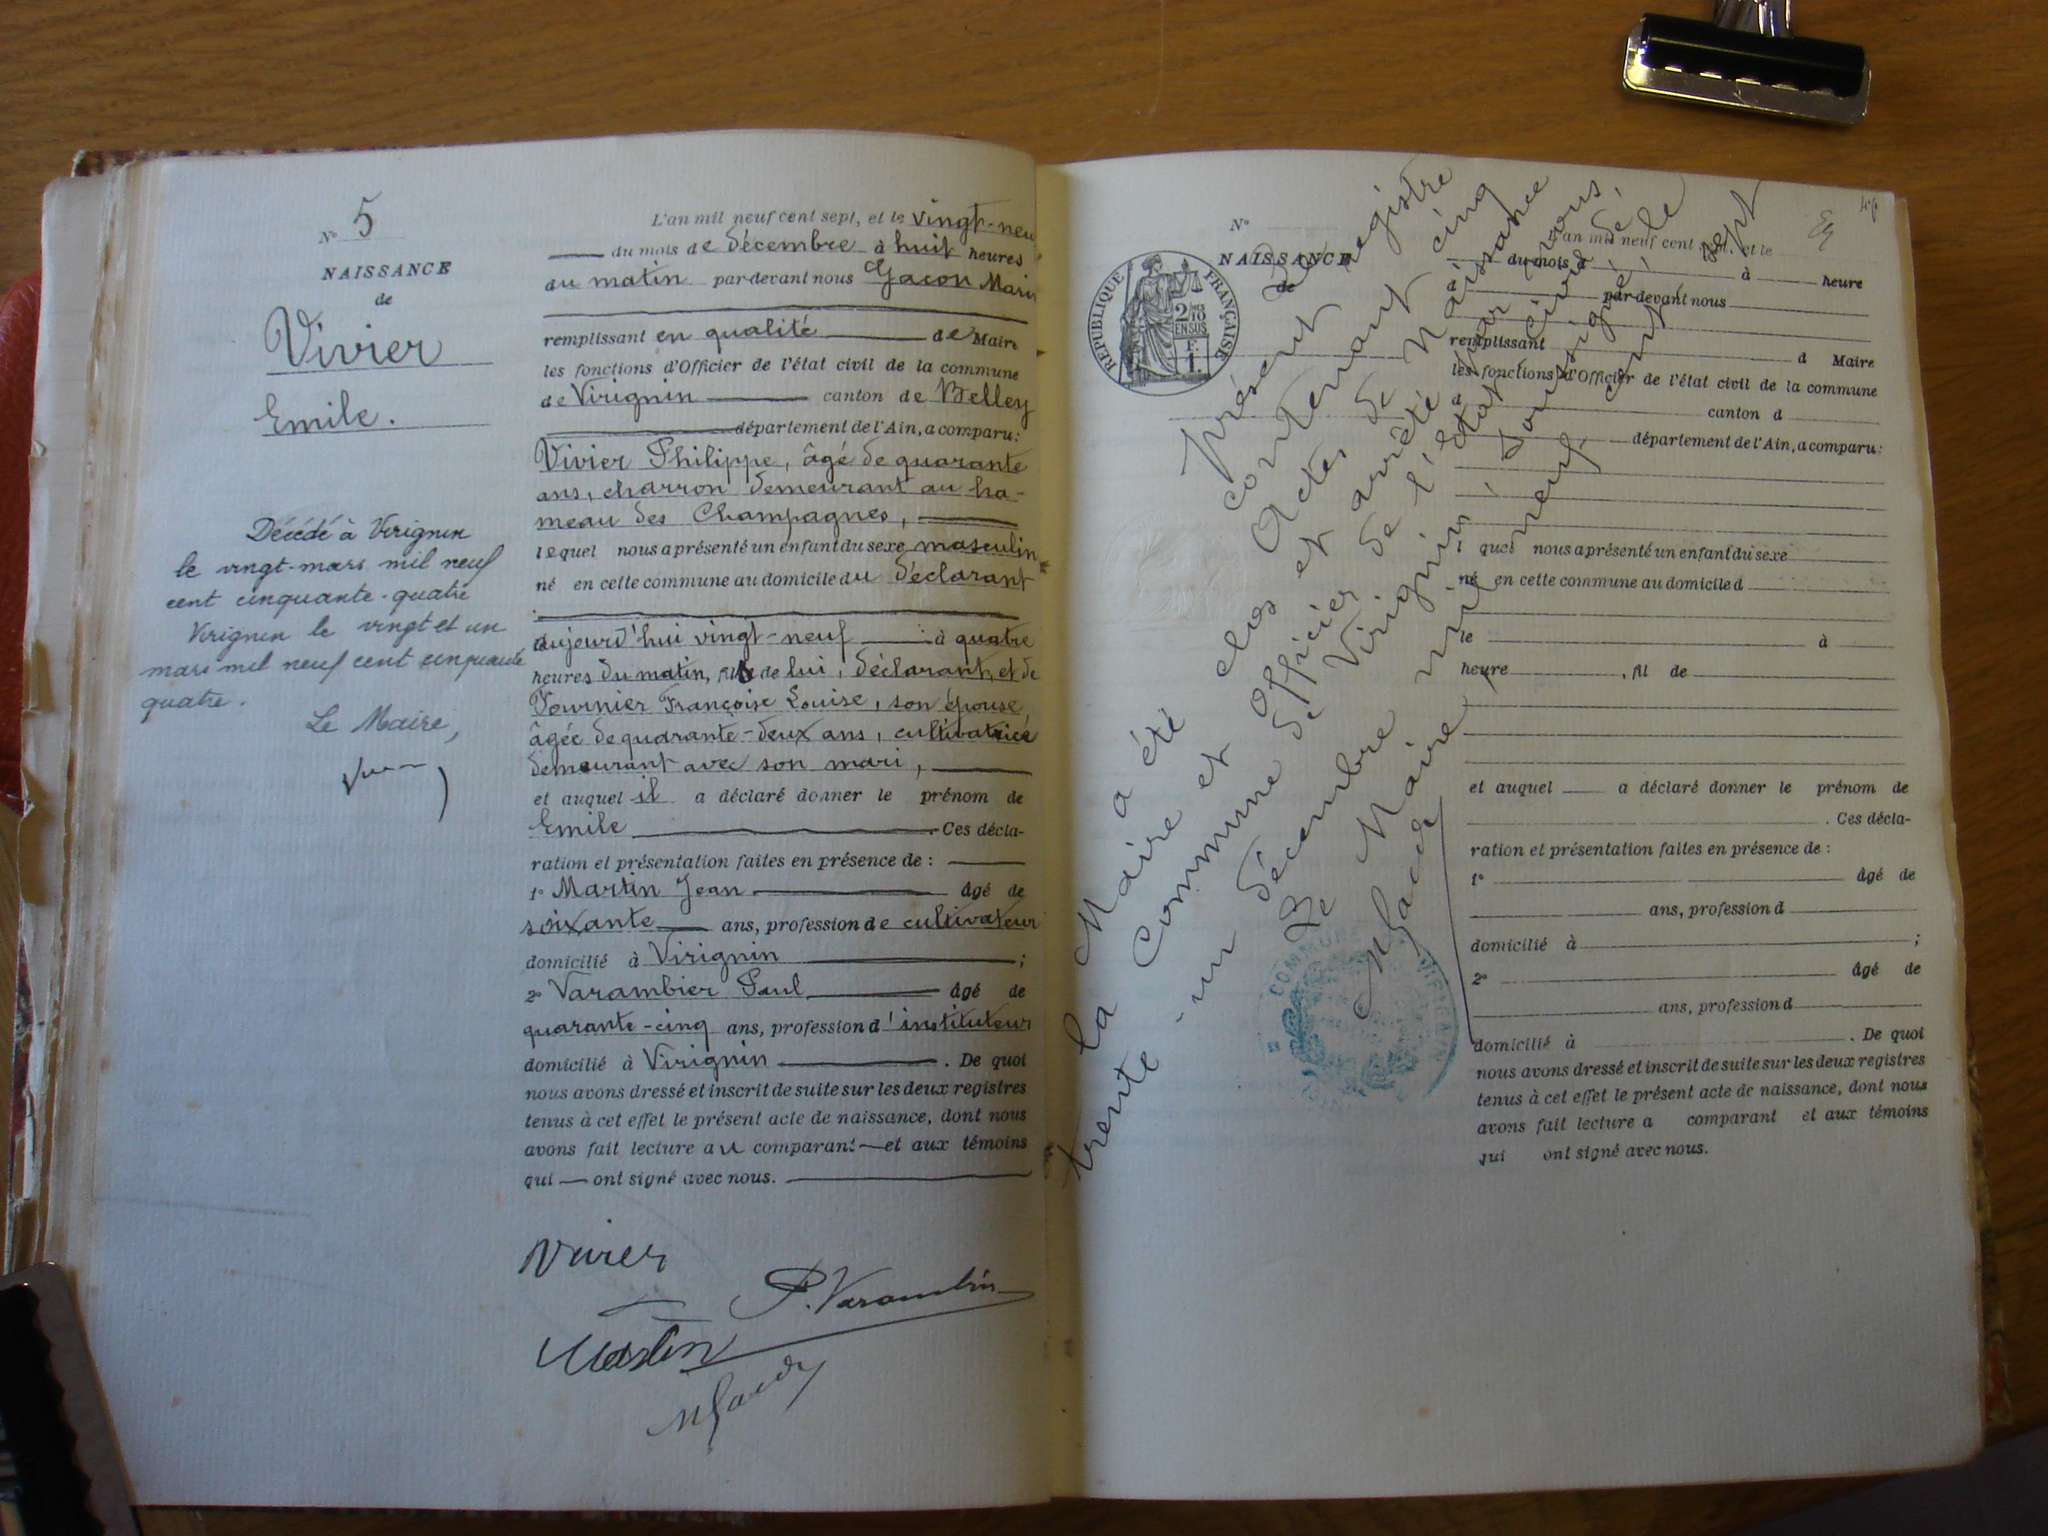 N° 5
NAISSANCE
de
Vivier
Emile.
Décédé à Virignin
le vingt-mars mil neuf
cent cinquante-quatre
Virignin le vingt et un
mars mil neuf cent cinquante
quatre.
Le Maire,
L'an mil neuf cent sept, et le vingt-neu
du mois de décembre à huit heures
du matin par-devant nous Gacon Mari
remplissant en qualité de Maire
les fonctions d'Officier de l'état civil de la commune
de Virignin canton de Belley
département de l'Ain, a comparu:
Vivier Philippe, âgé de quarante
ans, charron demeurant au ha-
meau des Champagnes,
lequel nous a présenté un enfant du sexe masculin
né en cette commune au domicile du déclarant
aujourd'hui vingt-neuf à quatre
heures du matin, fils de lui, déclarant, et de
Fournier Françoise Louise, son épouse,
âgée de quarante-deux ans, cultivatrice
demeurant avec son mari,
et auquel il a déclaré donner le prénom de
Emile. Ces décla-
ration et présentation faites en présence de:
1° Martin Jean âgé de
soixante ans, profession de cultivateur
domicilié à Virignin;
2° Varambier Paul âgé de
quarante-cinq ans, profession d'instituteur
domicilié à Virignin. De quoi
nous avons dressé et inscrit de suite sur les deux registres
tenus à cet effet le présent acte de naissance, dont nous
avons fait lecture au comparant et aux témoins
qui ont signé avec nous.
Vivier
P. Varambier
Martin
N°
NAISSANCE
de
RÉPUBLIQUE FRANÇAISE
2/10 EN SUS
F.
1.
Le présent registre
contenant cinq
Actes de Naissance
a été clos et arrêté par nous,
Maire et officier de l'état civil de
la Commune de Virignin, soussigné, le
trente-un décembre mil neuf cent sept
Le Maire,
COMMUNE DE VIRIGNIN
L'an mil neuf cent sept, et le
du mois d à heure
d par-devant nous
remplissant d Maire
les fonctions d'Officier de l'état civil de la commune
d canton d
département de l'Ain, a comparu:
l quel nous a présenté un enfant du sexe
né en cette commune au domicile d
le à
heure, fil de
et auquel a déclaré donner le prénom de
. Ces décla-
ration et présentation faites en présence de:
1° âgé de
ans, profession d
domicilié à ;
2° âgé de
ans, profession d
domicilié à . De quoi
nous avons dressé et inscrit de suite sur les deux registres
tenus à cet effet le présent acte de naissance, dont nous
avons fait lecture a comparant et aux témoins
qui ont signé avec nous.